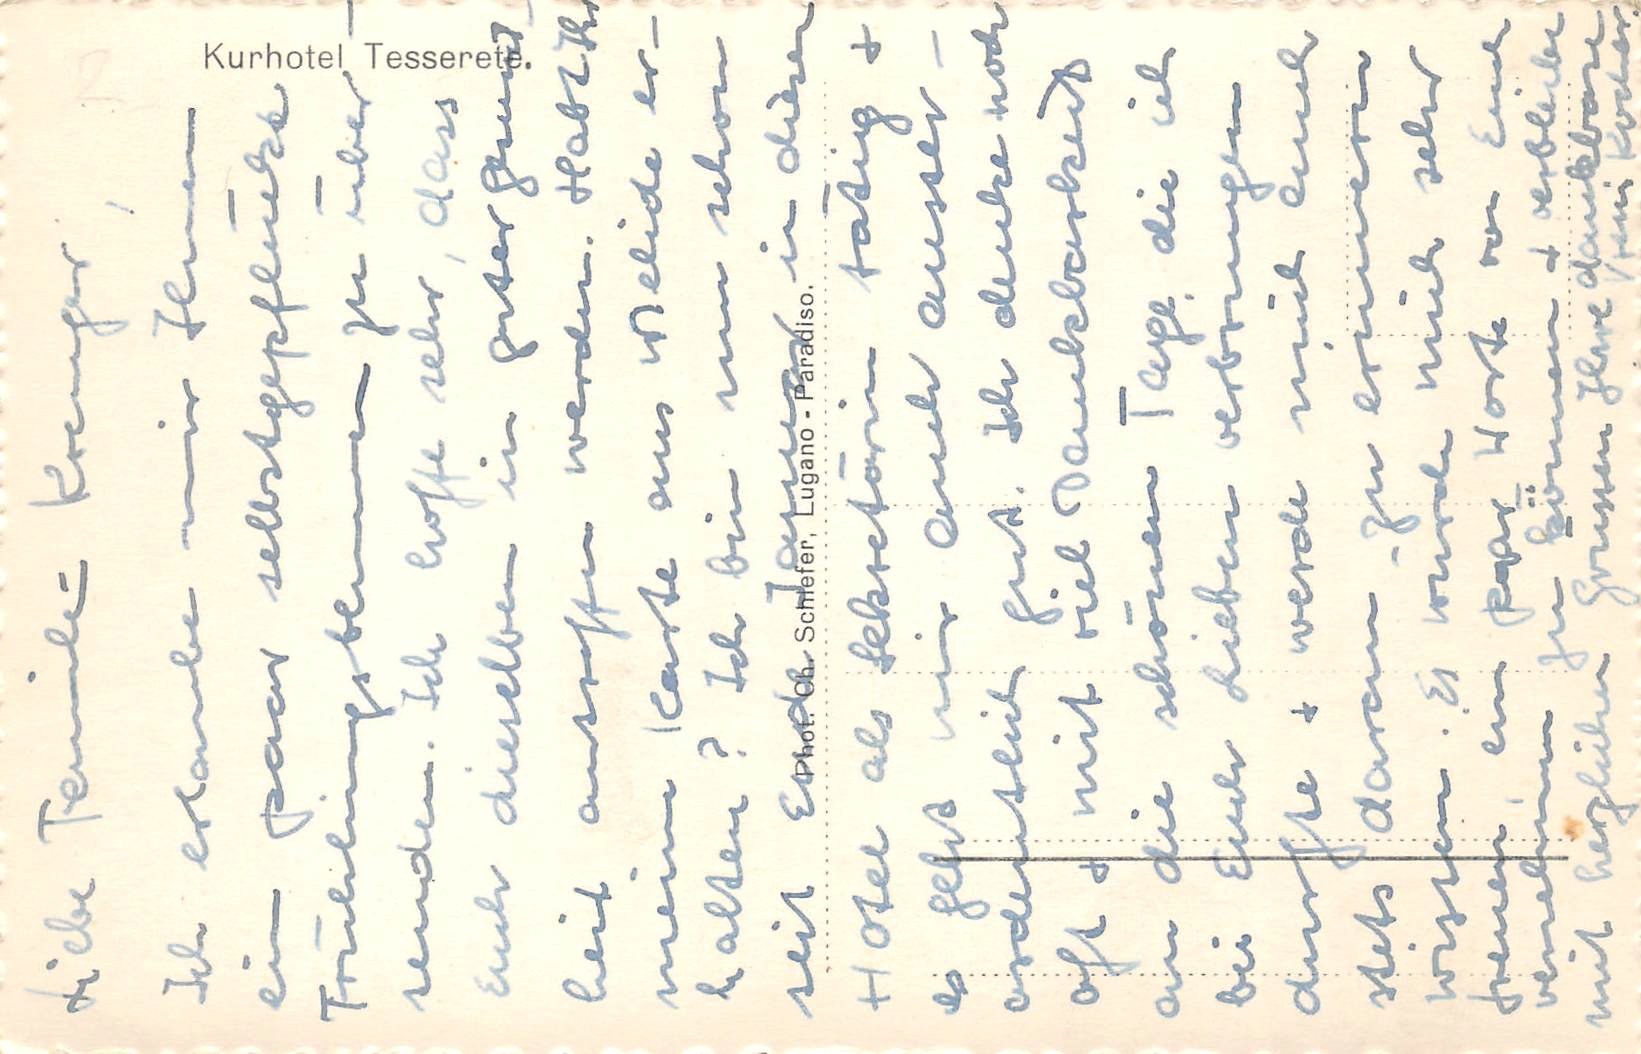 Kurhotel Tesserete.
Phot. Ch. Schiefer, Lugano - Paradiso.
Liebe Familie Krenger,
Ich erlaube mir Ihnen
ein paar selbstgepflückte
Frühlingsblumen zu über-
senden. Ich hoffe sehr, dass
Euch dieselben in guter Gesund-
heit antreffen werden. Habt Ihr
meine Karte aus Melide er-
halten? Ich bin nun schon
seit Ende Januar in diesem
Hotel als Sekretärin tätig +
es geht mir auch ausser-
ordentlich gut. Ich denke noch
oft + mit viel Dankbarkeit
an die schönen Tage, die ich
bei Euch Lieben verbringen
durfte + werde mich auch
stets daran zu erinnern
wissen. Es würde mich sehr
freuen, ein paar Worte von Euch
vernehmen zu können + verbleibe
mit herzlichen Grüssen Ihre dankbare
Kocher.